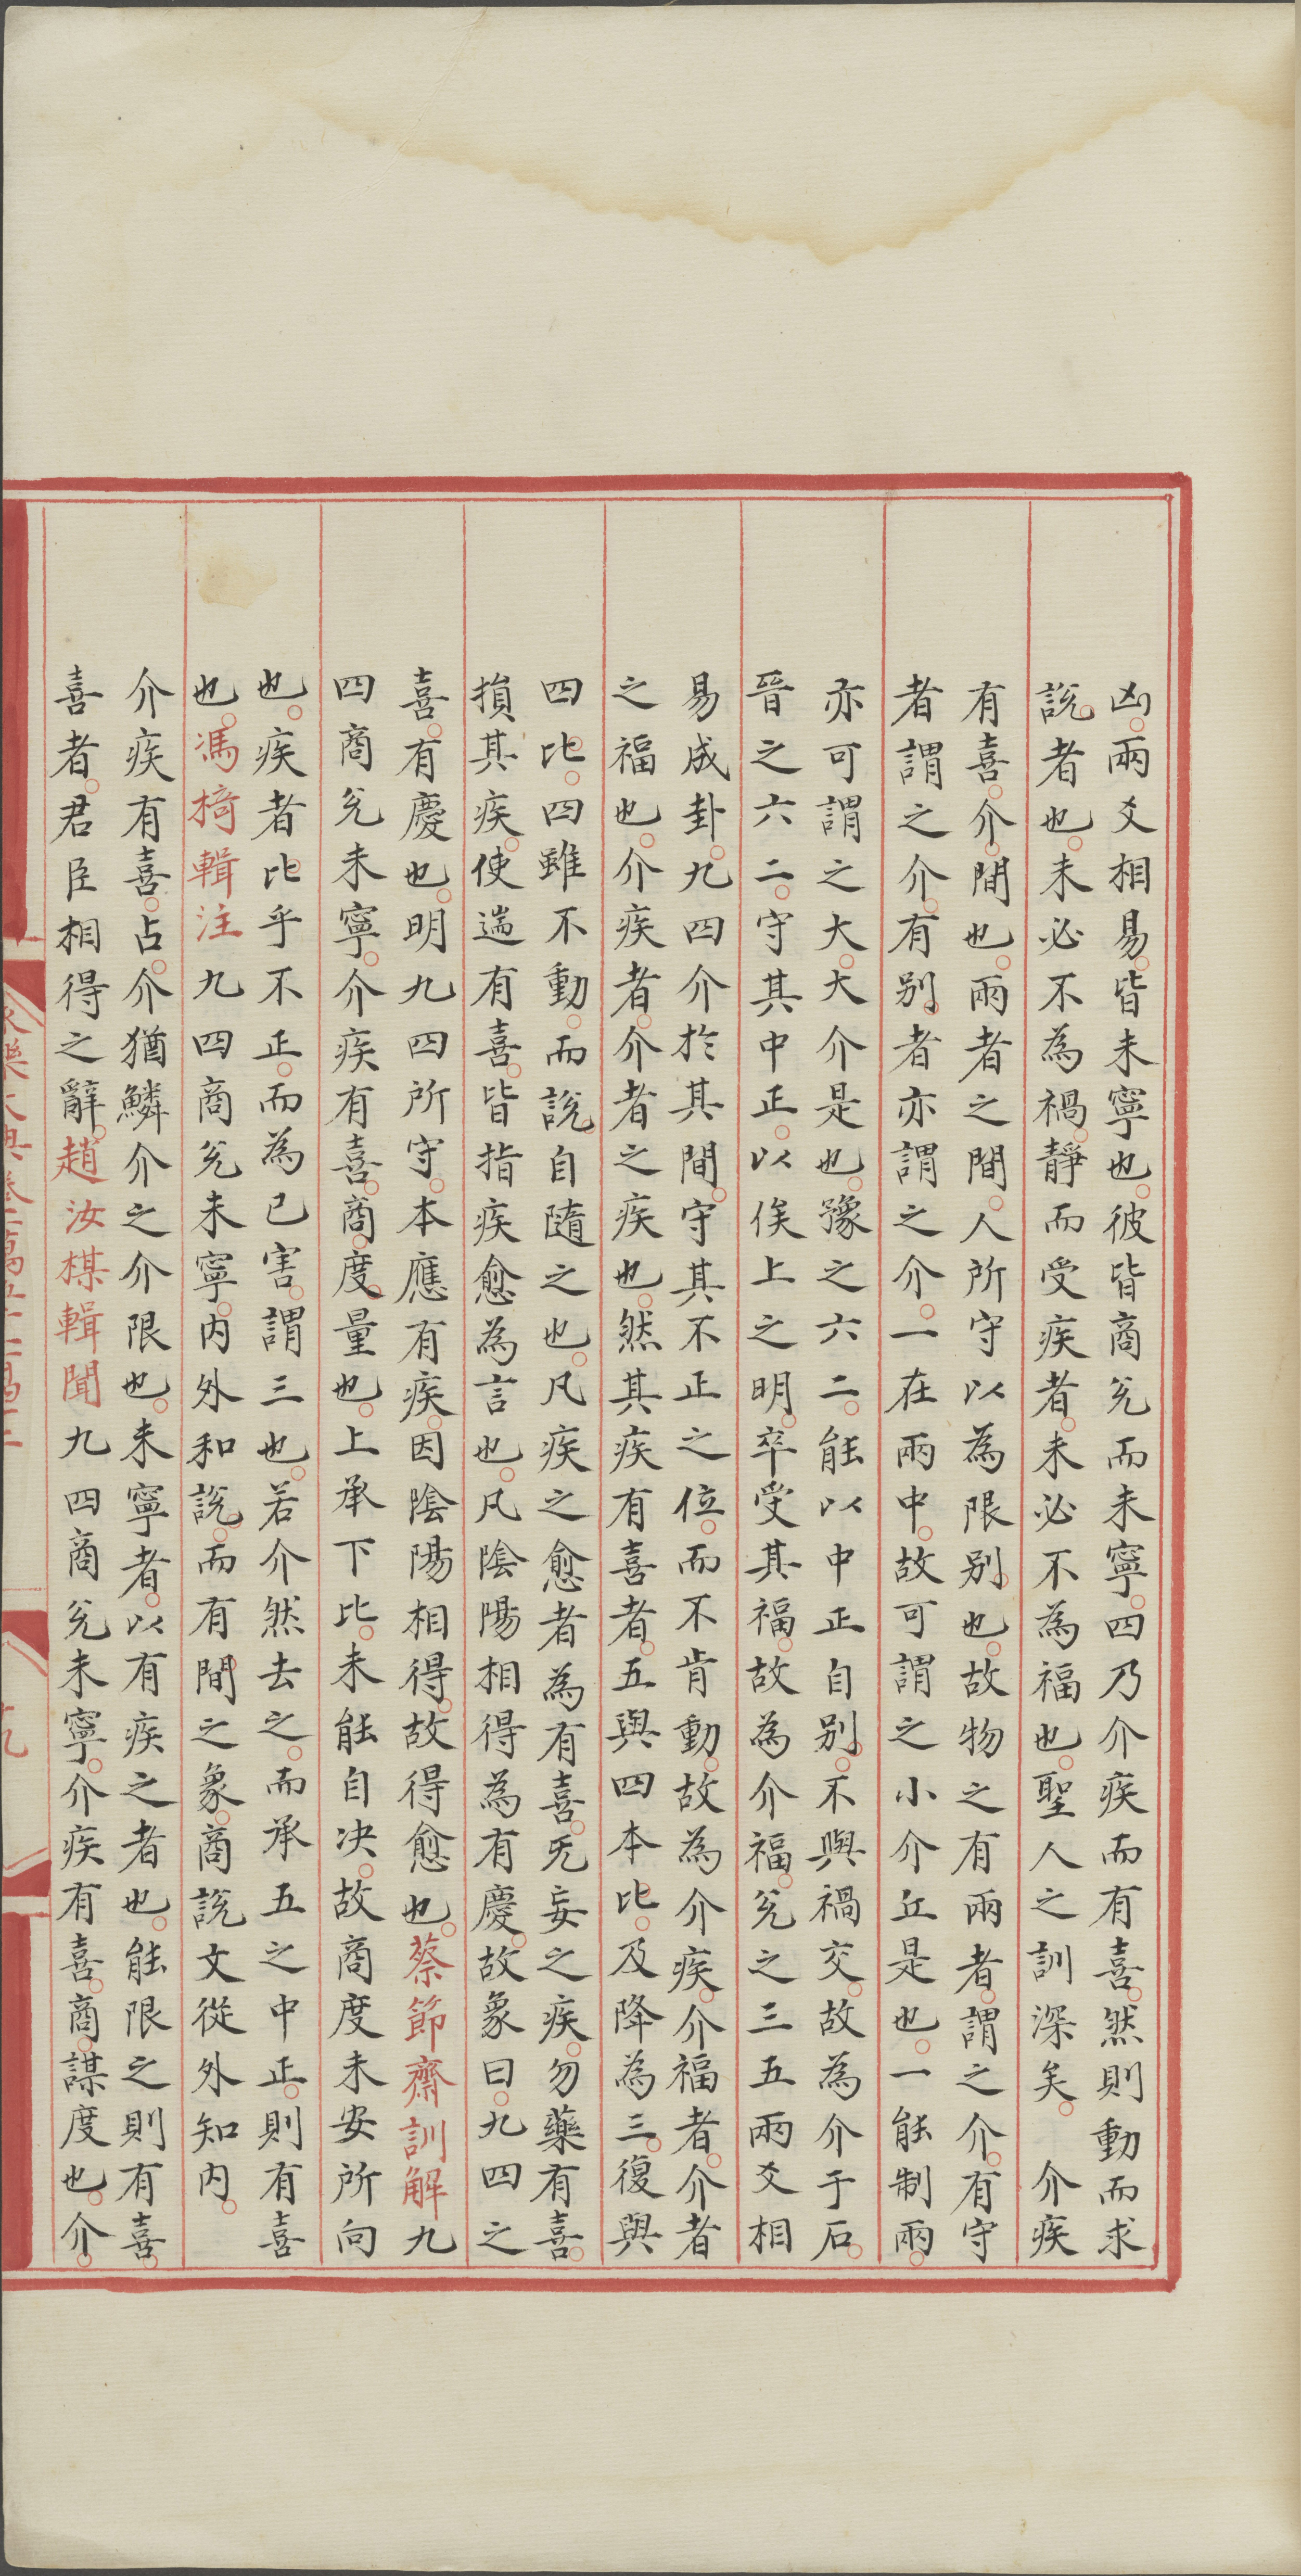 凶兩爻相易皆未寧也彼皆商兌而未寧四乃介疾而有喜然則動而求
說者也未必不為禍靜而受疾者未必不為福也聖人之訓深矣　介疾
有喜介間也兩者之間人所守以為限别也故物之有兩者謂之介有守
者謂之介有别者亦謂之介一在兩中故可謂之小介丘是也一能制兩
亦可謂之大大介是也豫之六二能以中正自别不與禍交故為介于石
晉之六二守其中正以俟上之明卒受其福故為介福兌之三五兩爻相
易成卦九四介於其間守其不正之位而不肯動故為介疾介福者介者
之福也介疾者介者之疾也然其疾有喜者五與四本比及降為三復與
四比四雖不動而說自隨之也凡疾之愈者為有喜无妄之疾勿藥有喜
損其疾使遄有喜皆指疾愈為言也凡陰陽相得為有慶故象曰九四之
喜有慶也明九四所守本應有疾因陰陽相得故得愈也蔡節齋訓解九
四商兌未寧介疾有喜商度量也上承下比未能自决故商度未安所向
也疾者比乎不正而為已害謂三也若介然去之而承五之中正則有喜
也馮椅輯注九四商兌未寧内外和說而有間之象商說文從外知内
介疾有喜占介猶鱗介之介限也未寧者以有疾之者也能限之則有喜
喜者君臣相得之辭趙汝楳輯聞九四商兌未寧介疾有喜商謀度也介